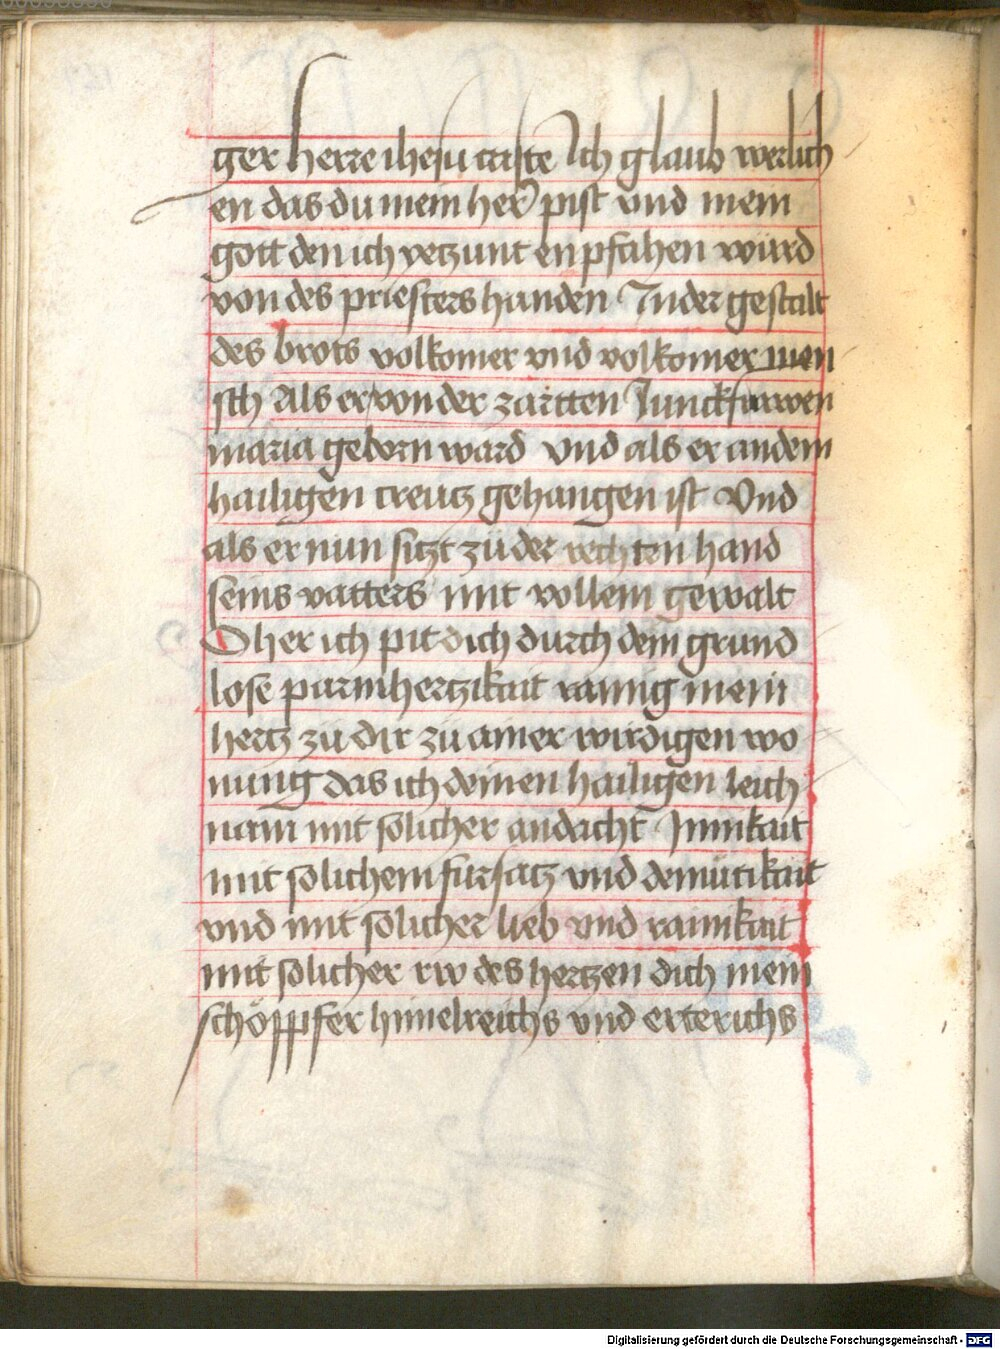 ger herre ihesu criste Ich glaub werlich
en das du mein her pist vnd mein
gott den ich yetzunt enpfahen würd
von des priesters handen In der gestalt
des brots volkomer vnd volkomer men
sch Als er von der zartten Junckfrawen
maria geborn ward vnd als er an dem
hailigen creutz gehangen ist Vnd
als er nun sitzt zü der rechten hand
seins vatters mit vollem gewalt
O her ich pit dich durch dein grund
lose parmhertzikait rainig mein
hertz zü dir zü ainer wirdigen wo
nung das ich deinen hailigen leich
nam mit solicher andacht Innikait
mit solichem fürsatz vnd demütikait
vnd mit solicher lieb vnd rainikait
mit solicher rw des hertzen dich mein
schöppfer himelreichs vnd erterichs
Digitalisierung gefördert durch die Deutsche Forschungsgemeinschaft - DFG